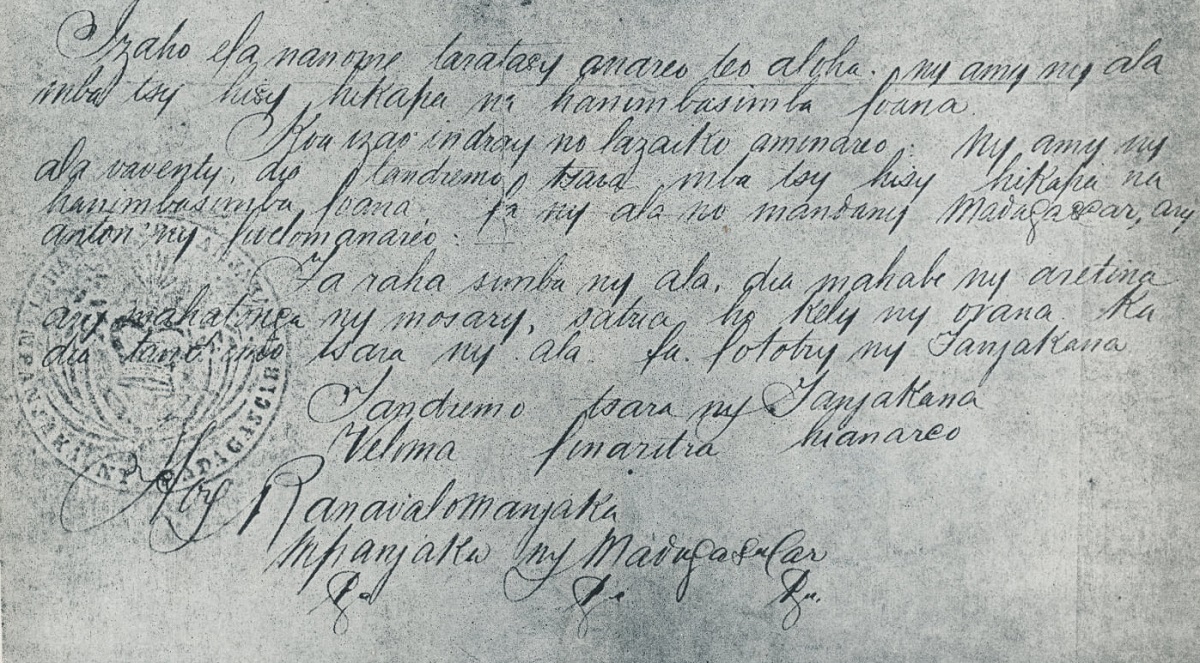 Izaho efa nanome taratasy anareo teo aloha. ny amy ny ala
mba tsy hisy hikapa na hanimbasimba foana.
Koa izao indray no lazaiko aminareo: Ny amy ny
ala vaventy, dia tandremo tsara mba tsy hisy hikapa na
hanimbasimba foana, fa ny ala no mandany Madagascar, ary
anton' ny fiveloman̓areo:
Fa raha simba ny ala, dia mahabe ny aretina
ary mahatonga ny mosary, satria ho kely ny orana. Ka
dia tandremo tsara ny ala. fa fototry ny Fanjakana
Tandremo tsara ny Fanjakana
Veloma finaritra hianareo
Hoy Ranavalomanjaka
Mpanjaka ny Madagascar
MPANJAKA NY MADAGASCAR